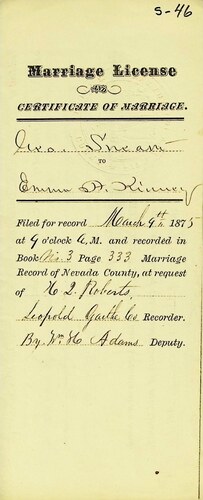 5-46
Marriage License
AND
CERTIFICATE OF MARRIAGE.
Geo.
TO
Emma A. Kinney
Filed for record March 9th 1875
at 9 o'clock A, M. and recorded in
Book No. 3 Page 333 Marriage
Record of Nevada County, at request
of H L Roberts
Leopold Recorder.
By, Wm H Adams Deputy.